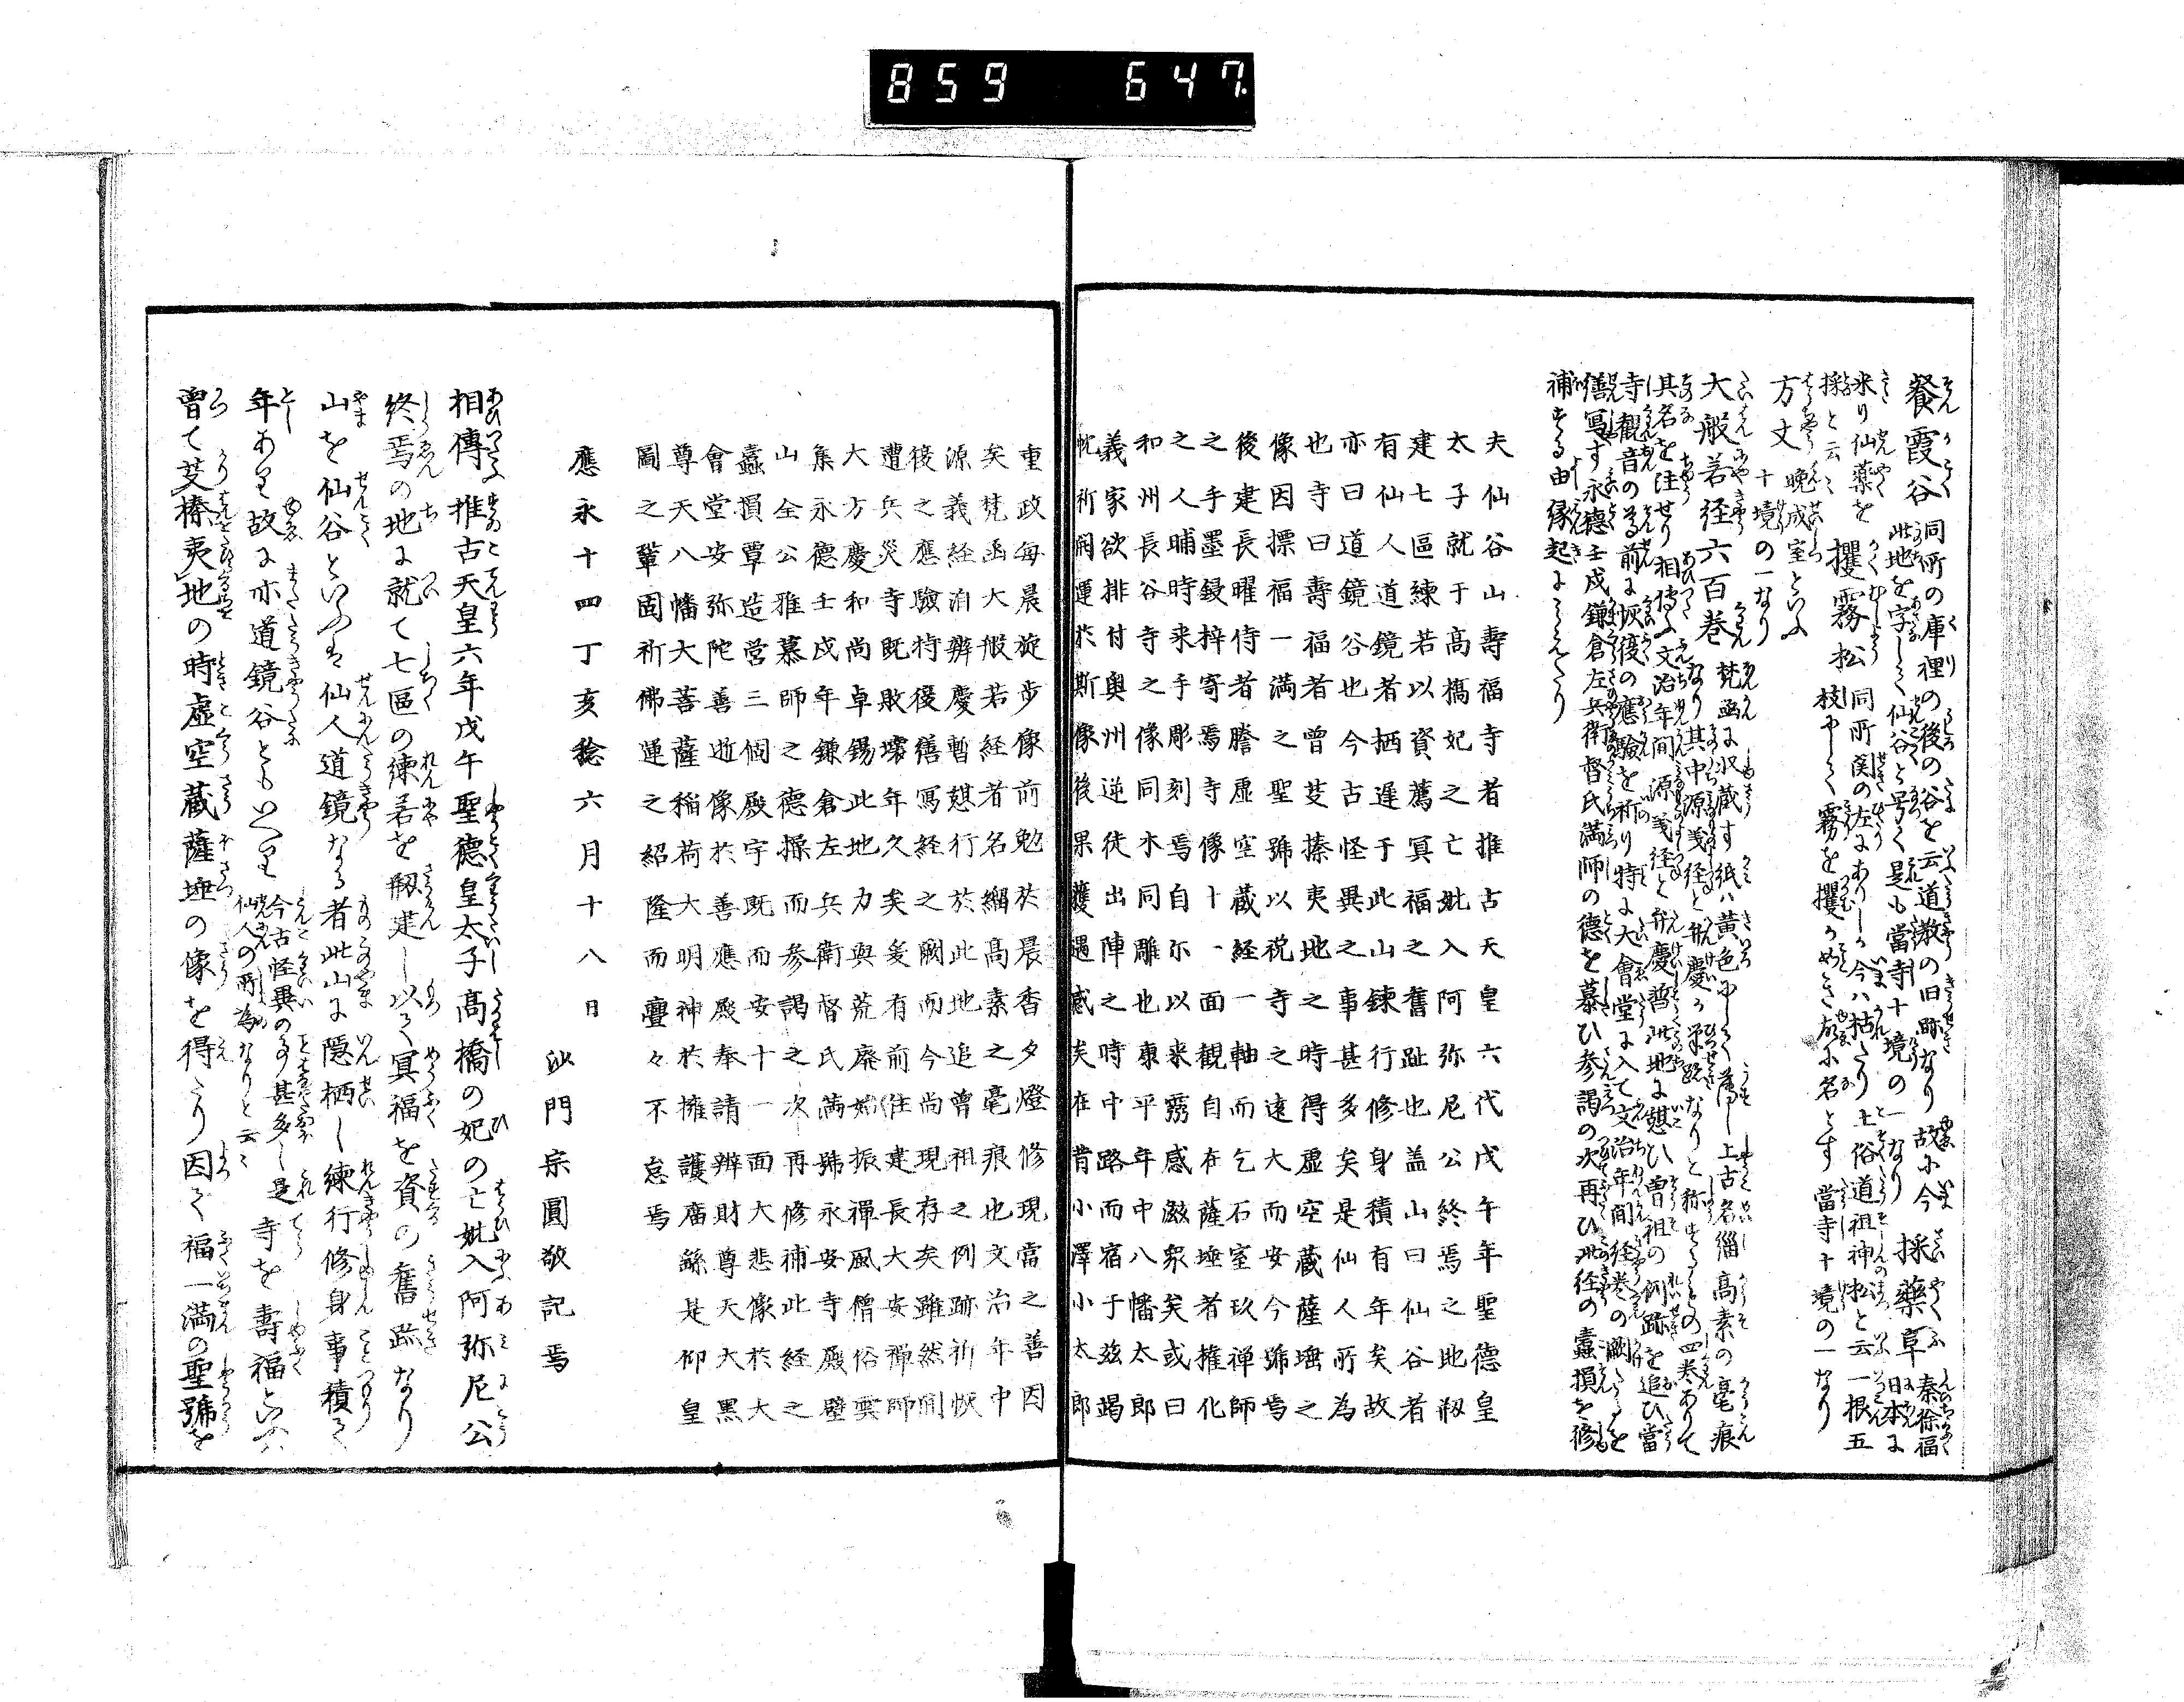 859 647.
餐霞谷 同所の庫裡の後の谷を云道教の旧跡なり故に今
此地を字して仙谷と号く是も當寺十境の一なり
採藥阜 秦徐福日本に
来り仙薬を採と云々
攫霧松 同所関の左にありしが今は枯たり土俗道祖神松と云一根五
枝にして霧を攫が如き故に名とす當寺十境の一なり
方丈 晩成室といふ
十境の一なり
大般若経六百巻 梵函に収蔵す紙は黄色にして薄し上古名緇高素の毫痕
なり其中源義経と弁慶が筆跡なりと称するもの四巻ありて
其名を注せり相傳ふ文治年間源義経と弁慶暫此地に憩ひ曽祖の例跡を追ひ當
寺観音の尊前に恢復の應驗を祈り特に大會堂に入て文治年間経巻の闕たるを
繕寫す永德壬戌鎌倉左兵衛督氏満師の德を慕ひ参謁の次再ひ此経の蠹損を修
補する由縁起にみえたり
夫仙谷山壽福寺者推古天皇六代戊午年聖德皇
太子就于高橋妃之亡妣入阿弥尼公終焉之地剏
建七區練若以資薦冥福之舊趾也盖山曰仙谷者
有仙人道鏡者栖遲于此山錬行修身積有年矣故
亦曰道鏡谷也今古怪異之事甚多矣是仙人所為
也寺曰壽福者曾芟搸夷地之時得虚空蔵薩埵之
像因摽福一満之聖號以祝寺之遠大而安今號焉
後建長曜侍者謄虚空蔵経一軸而乞石室玖禅師
之手墨鋟梓寄焉寺像十一面觀自在薩埵者搉化
之人晡時来手彫刻焉自尓以来霧感滋衆矣或曰
和州長谷寺之像同木同雕也東平年中八幡太郎
義家欲排付奥州逆徒出陣之時中路而宿于茲竭
忱祈開運於斯像後果獲遇感矣在昔小澤小太郎
重政毎晨旋歩像前勉於晨香夕燈修現當之善因
矣梵函大般若経者名緇高素之毫痕也文治年中
源義経洎辨慶暫憩行於此地追曾祖之例跡祈恢
復之應驗特復繕寫経之闕而今尚現存矣雖然間
遭兵災寺既敗壊年久矣爰有前住建長大安禅師
大方慶和尚卓錫此地力與荒廃姤振禪風僧俗雲
集永德壬戌年鎌倉左兵衛督氏満號永安寺殿壁
山全公雅慕師之德操而参謁之次再修補此経之
蠹損覃造営三個殿宇既而安十一面大悲像於大
會堂安弥陀善逝像於善應殿奉請辨財尊天大黒
尊天八幡大菩薩稲荷大明神於擁護廟繇是仰皇
圖之鞏固祈佛運之紹隆而亹々不怠焉
應永十四丁亥稔六月十八日
沙門宗圓敬記焉
相傳ふ推古天皇六年戊午聖德皇太子高橋の妃の亡妣入阿弥尼公
終焉の地に就て七區の練若を剏建し以て冥福を資の舊跡なり
山を仙谷といふは仙人道鏡なる者此山に隠栖し練行修身事積て
年あり故に亦道鏡谷ともいへり 今古怪異の事甚多し是
仙人の所為なりと云々 寺を壽福といふは
曽て芟搸夷地の時虚空蔵薩埵の像を得たり因て福一満の聖號を